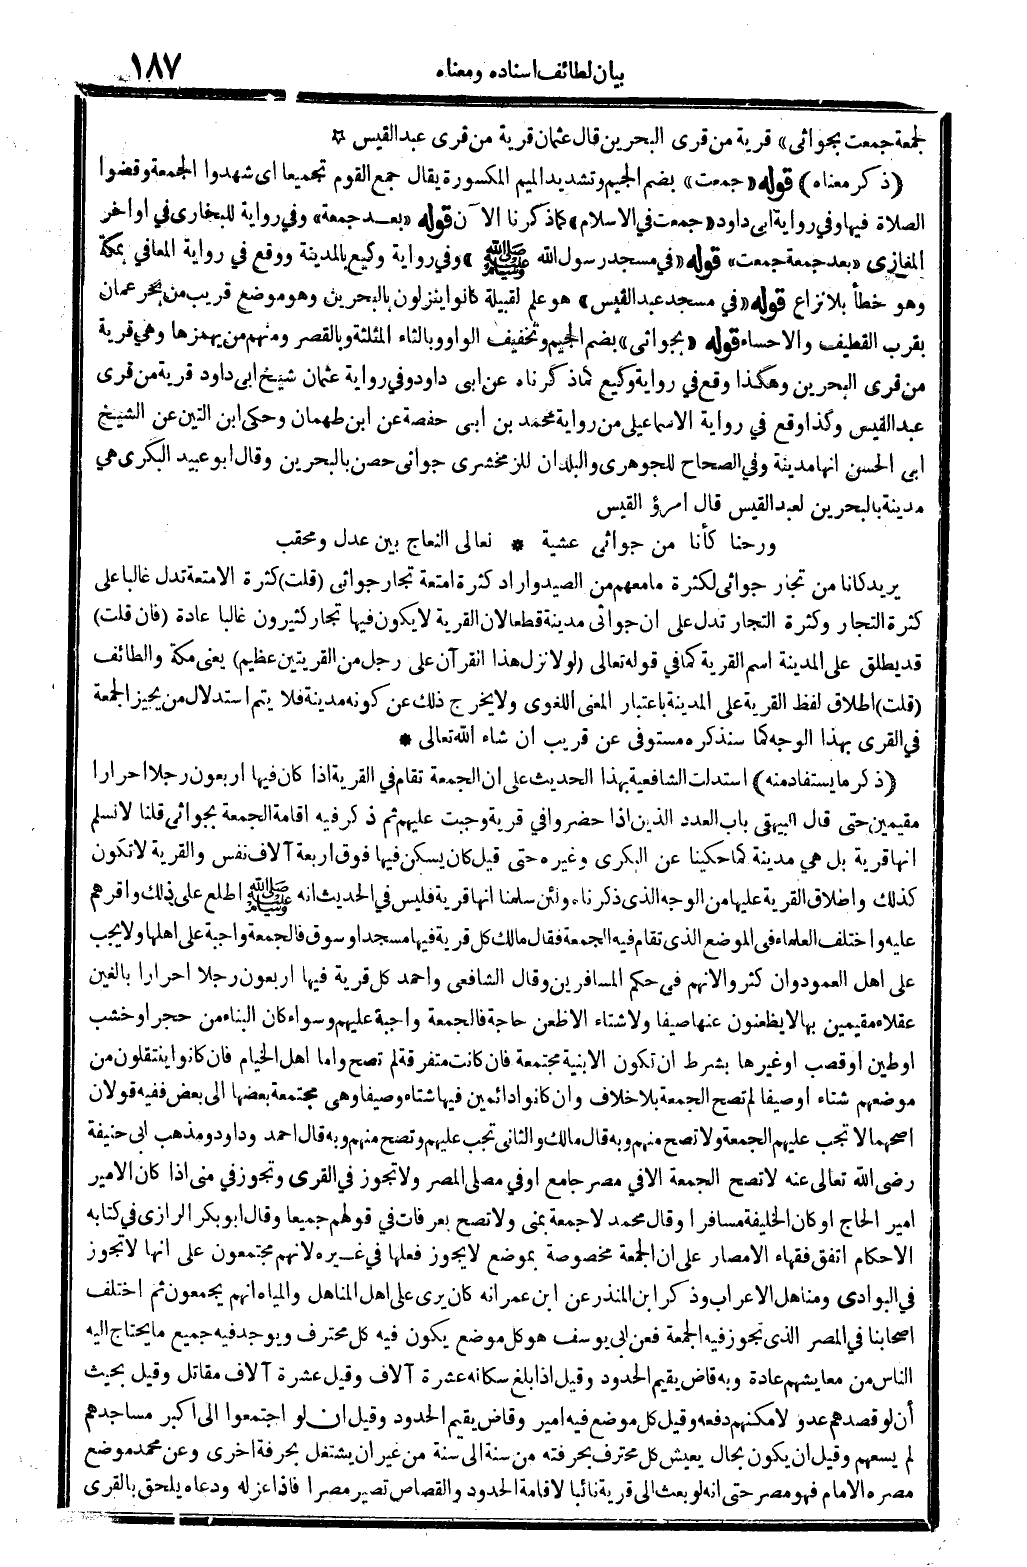 بيان لطائف اسناده ومعناه
١٨٧
لجمعة جمعت بجواثى» قرية من قرى البحرين قال عثمان قرية من قرى عبد القيس *
(ذكر معناه) قوله «جمعت» بضم الجيم وتشديد الميم المكسورة يقال جمع القوم تجميعا اى شهدوا الجمعة وقضوا
الصلاة فيها وفي رواية ابى داود «جمعت في الاسلام» كما ذكرنا الآن قوله «بعد جمعة» وفي رواية للبخارى في اواخر
المغازى «بعد جمعة جمعت» قوله «في مسجد رسول الله ﷺ» وفي رواية وكيع بالمدينة ووقع في رواية المعافي بمكة
وهو خطأ بلا نزاع قوله «في مسجد عبد القيس» هو علم لقبيلة كانوا ينزلون بالبحرين وهو موضع قريب من بحر عمان
بقرب القطيف والاحساء قوله «بجواثى» بضم الجيم وتخفيف الواو وبالثاء المثلثة وبالقصر ومنهم من يهمزها وهي قرية
من قرى البحرين وهكذا وقع في رواية وكيع كما ذكرناه عن ابى داود وفي رواية عثمان شيخ ابى داود قرية من قرى
عبد القيس وكذا وقع في رواية الاسماعيلى من رواية محمد بن ابى حفصة عن ابن طهمان وحكى ابن التين عن الشيخ
ابى الحسن انها مدينة وفي الصحاح للجوهرى والبلدان للزمخشرى جواثى حصن بالبحرين وقال ابو عبيد البكرى هي
مدينة بالبحرين لعبد القيس قال امرؤ القيس
ورحنا كأنا من جواثى عشية * نعالى النعاج بين عدل ومحقب
يريد كانا من تجار جواثى لكثرة ما معهم من الصيد واراد كثرة امتعة تجار جواثى (قلت) كثرة الامتعة تدل غالبا على
كثرة التجار وكثرة التجار تدل على ان جواثى مدينة قطعا لان القرية لا يكون فيها تجار كثيرون غالبا عادة (فان قلت)
قد يطلق على المدينة اسم القرية كما في قوله تعالى (لولا نزل هذا القرآن على رجل من القريتين عظيم) يعنى مكة والطائف
(قلت) اطلاق لفظ القرية على المدينة باعتبار المعنى اللغوى ولا يخرج ذلك عن كونه مدينة فلا يتم استدلال من يجيز الجمعة
في القرى بهذا الوجه كما سنذكره مستوفى عن قريب ان شاء الله تعالى *
(ذكر ما يستفاد منه) استدلت الشافعية بهذا الحديث على ان الجمعة تقام في القرية اذا كان فيها اربعون رجلا احرارا
مقيمين حتى قال البيهقى باب العدد الذين اذا حضروا في قرية وجبت عليهم ثم ذكر فيه اقامة الجمعة بجواثى قلنا لا نسلم
انها قرية بل هي مدينة كما حكينا عن البكرى وغيره حتى قيل كان يسكن فيها فوق اربعة آلاف نفس والقرية لا تكون
كذلك واطلاق القرية عليها من الوجه الذى ذكرناه ولئن سلمنا انها قرية فليس في الحديث انه ﷺ اطلع على ذلك واقرهم
عليه واختلف العلماء في الموضع الذى تقام فيه الجمعة فقال مالك كل قرية فيها مسجد او سوق فالجمعة واجبة على اهلها ولا يجب
على اهل العمود وان كثروا لانهم في حكم المسافرين وقال الشافعى واحمد كل قرية فيها اربعون رجلا احرارا بالغين
عقلاء مقيمين بها لا يظعنون عنها صيفا ولا شتاء الا ظعن حاجة فالجمعة واجبة عليهم وسواء كان البناء من حجر او خشب
او طين او قصب او غيرها بشرط ان تكون الابنية مجتمعة فان كانت متفرقة لم تصح واما اهل الخيام فان كانوا ينتقلون من
موضعهم شتاء او صيفا لم تصح الجمعة بلا خلاف وان كانوا دائمين فيها شتاء وصيفا وهى مجتمعة بعضها الى بعض ففيه قولان
اصحهما لا تجب عليهم الجمعة ولا تصح منهم وبه قال مالك والثانى تجب عليهم وتصح منهم وبه قال احمد وداود ومذهب ابى حنيفة
رضى الله تعالى عنه لا تصح الجمعة الا في مصر جامع او في مصلى المصر ولا تجوز في القرى وتجوز في منى اذا كان الامير
امير الحاج او كان الخليفة مسافرا وقال محمد لا جمعة بمنى ولا تصح بعرفات في قولهم جميعا وقال ابو بكر الرازى في كتابه
الاحكام اتفق فقهاء الامصار على ان الجمعة مخصوصة بموضع لا يجوز فعلها في غيره لانهم مجتمعون على انها لا تجوز
في البوادى ومناهل الاعراب وذكر ابن المنذر عن ابن عمر انه كان يرى على اهل المناهل والمياه انهم يجمعون ثم اختلف
اصحابنا في المصر الذى تجوز فيه الجمعة فعن ابى يوسف هو كل موضع يكون فيه كل محترف ويوجد فيه جميع ما يحتاج اليه
الناس من معايشهم عادة وبه قاض يقيم الحدود وقيل اذا بلغ سكانه عشرة آلاف وقيل عشرة آلاف مقاتل وقيل بحيث
أن لو قصدهم عدو لامكنهم دفعه وقيل كل موضع فيه امير وقاض يقيم الحدود وقيل ان لو اجتمعوا الى اكبر مساجدهم
لم يسعهم وقيل ان يكون بحال يعيش كل محترف بحرفته من سنة الى سنة من غير ان يشتغل بحرفة اخرى وعن محمد موضع
مصره الامام فهو مصر حتى انه لو بعث الى قرية نائبا لاقامة الحدود والقصاص تصير مصرا فاذا عزله ودعاه يلحق بالقرى